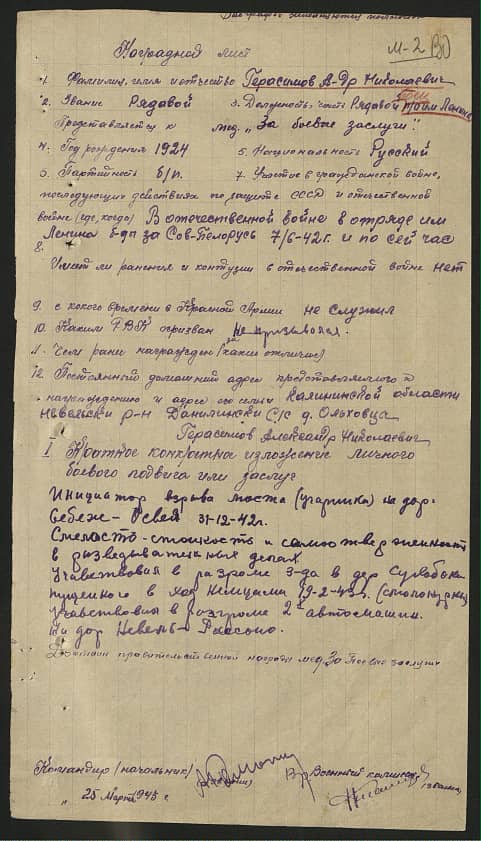 М-2
Наградной лист
1. Фамилия, имя и отчество Герасимов А-др Николаевич
2. Звание Рядовой 3. Должность, часть Рядовой Ленина
Представляется к мед. "За боевые заслуги"
4. Год рождения 1924 5. Национальность Русский
5. Партийность б/п. 7. Участие в гражданской войне,
последующих действиях по защите СССР и отечественной
войне (где, когда) В отечественной войне в отряде им
Ленина б-да за Сов-Белорусь 7/6-42г. и по сей час
8.
Имеет ли ранения и контузии в отечественной войне нет
9. с какого времени в Красной Армии не служил
10. Каким РВК призван Не призывался.
11. Чем ранее награжден (за какие отличия)
12. Постоянный домашний адрес представляемого к
награждению и адрес его семьи Калининской области
Невельски р-н Данилински С/с д. Ольховца
Герасимов Александр Николаевич
I Краткое конкретное изложение личного
боевого подвига или заслуг
Инициатор взрыва моста на дор-
Себеж-Освея 31-12-42г.
Смеласть-стойкость и самоотверженность
в разведывательных делах
Учавствовал в разгроме в дер
пущенного в ход немцами 19-2-43г.
Учавствовал в разгроме 2х автомашин.
На дор Невель-Россоно.
Достоин правительственной награды мед За боевые заслуги
Командир (начальник) Вр Военный комиссар
"25 Марта 1943 г